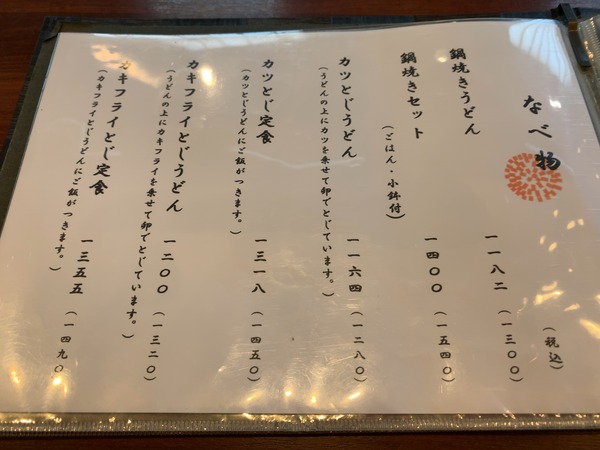 なべ物
(税込)
鍋焼きうどん 一一八二 (一三〇〇)
鍋焼きセット 一四〇〇 (一五四〇)
(ごはん・小鉢付)
カツとじうどん 一一六四 (一二八〇)
(うどんの上にカツを乗せて卵でとじています。)
カツとじ定食 一三一八 (一四五〇)
(カツとじうどんにご飯がつきます。)
カキフライとじうどん 一二〇〇 (一三二〇)
(うどんの上にカキフライを乗せて卵でとじています。)
カキフライとじ定食 一三五五 (一四九〇)
(カキフライとじうどんにご飯がつきます。)